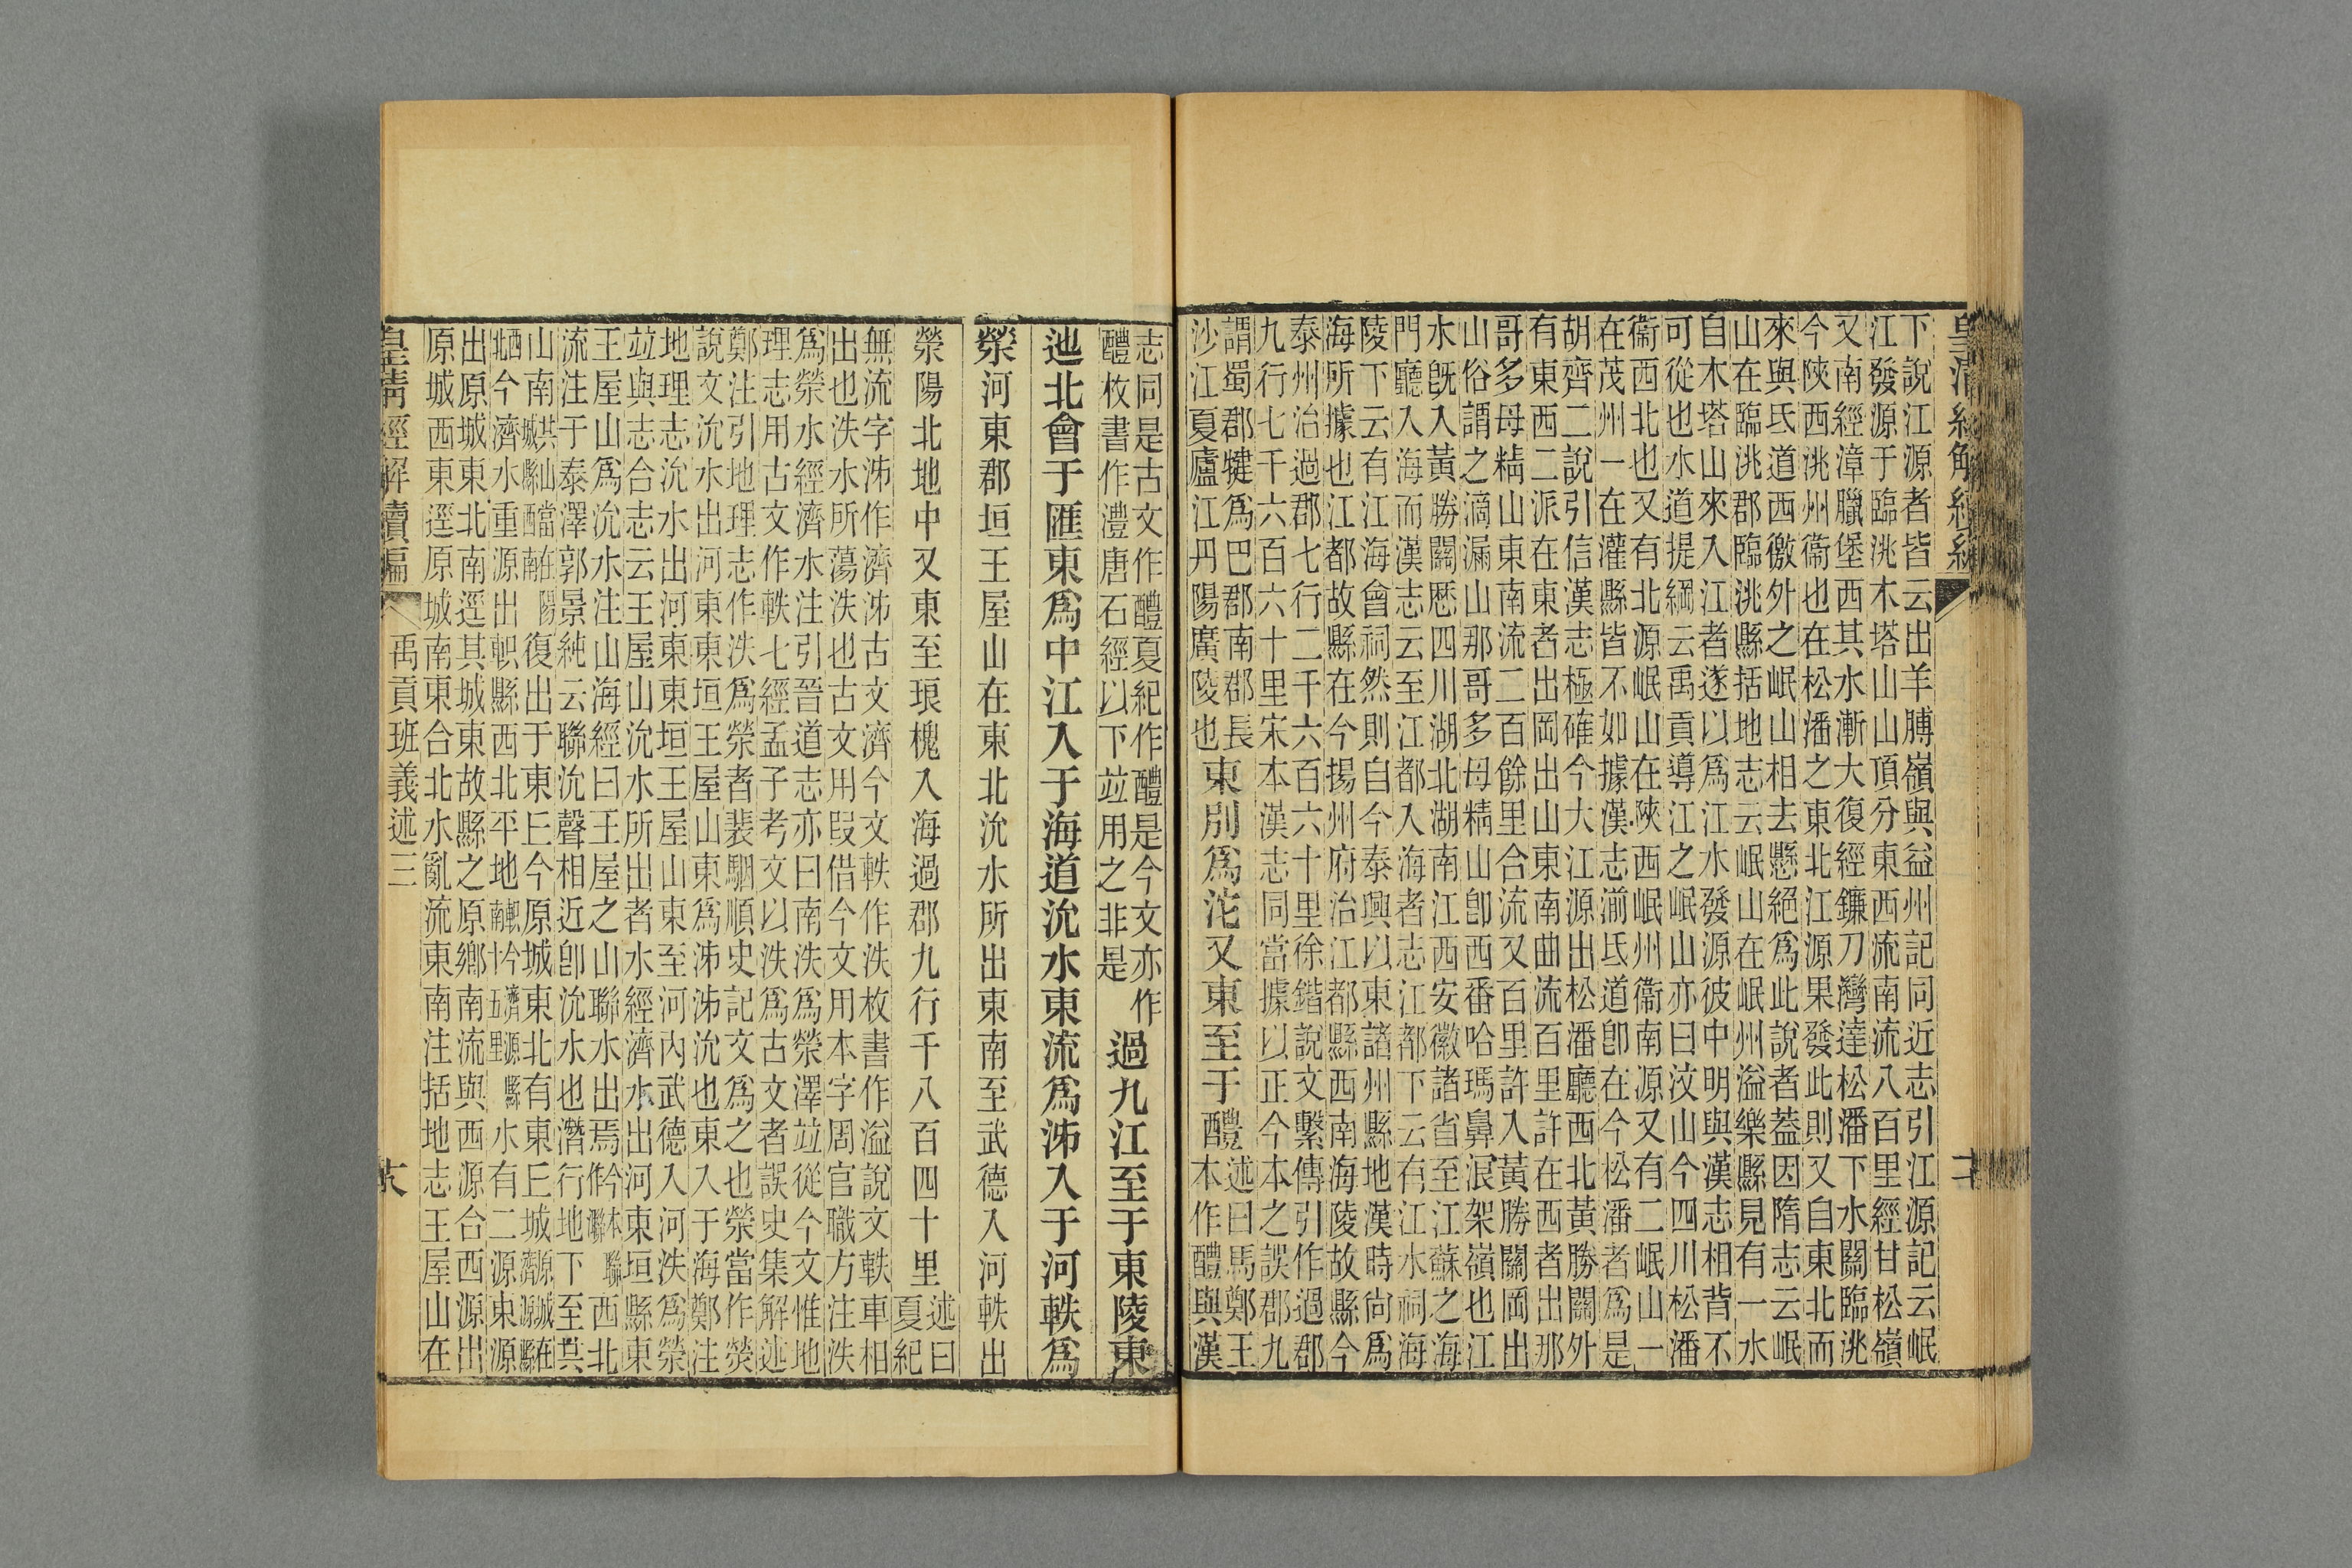 皇清經解續編
下說江源者皆云出羊膊嶺與益州記同近志引江源記云岷
江發源于臨洮木塔山山頂分東西流南流八百里經甘松嶺
又南經漳臘堡西其水漸大復經鐮刀灣達松潘下水關臨洮
今陝西洮州衞也在松潘之東北江源果發此則又自東北而
來與氐道西徼外之岷山相去懸絕爲此說者葢因隋志云岷
山在臨洮郡臨洮縣括地志云岷山在岷州溢樂縣見有一水
自木塔山來入江者遂以爲江水發源彼中明與漢志相背不
可從也水道提綱云禹貢導江之岷山亦曰汶山今四川松潘
衞西北也又有北源岷山在陝西岷州衞南源又有二岷山一
在茂州一在灌縣皆不如據漢志湔氐道卽在今松潘者爲是
胡齊二說引信漢志極確今大江源出松潘廳西北黃勝關外
有東西二派在東者出岡出山東南曲流百里許在西者出那
哥多母精山東南流二百餘里合流又百里許入黃勝關岡出
山俗謂之滴漏山那哥多母精山卽西番哈瑪鼻浪架嶺也江
水旣入黃勝關歷四川湖北湖南江西安徽諸省至江蘇之海
門廳入海而漢志云至江都入海者志江都下云有江水祠海
陵下云有江海會祠然則自今泰興以東諸州縣地漢時尙爲
海所據也江都故縣在今揚州府治江都縣西南海陵故縣今
泰州治過郡七行二千六百六十里徐鍇說文繫傳引作過郡
九行七千六百六十里宋本漢志同當據以正今本之誤郡九
謂蜀郡犍爲巴郡南郡長沙江夏廬江丹陽廣陵也東別爲沱又東至于醴述曰馬鄭王本作醴與漢
志同是古文作醴夏紀作醴是今文亦作醴枚書作澧唐石經以下竝用之非是過九江至于東陵東
迆北會于匯東爲中江入于海道沇水東流爲泲入于河軼爲
滎河東郡垣王屋山在東北沇水所出東南至武德入河軼出
滎陽北地中又東至琅槐入海過郡九行千八百四十里述曰夏紀
無流字泲作濟泲古文濟今文軼作泆枚書作溢說文軼車相
出也泆水所蕩泆也古文用叚借今文用本字周官職方注泆
爲滎水經濟水注引晉道志亦曰南泆爲滎澤竝從今文惟地
理志用古文作軼七經孟子考文以泆爲古文者誤史集解述
鄭注引地理志作泆爲滎者裴駰順史記文爲之也滎當作熒
說文沇水出河東東垣王屋山東爲泲泲沇也東入于海鄭注
地理志沇水出河東東垣王屋山東至河內武德入河泆爲滎
竝與志合志云王屋山沇水所出者水經濟水出河東垣縣東
王屋山爲沇水注山海經曰王屋之山聯水出焉今本作㶌聯西北
流注于泰澤郭景純云聯沇聲相近卽沇水也潛行地下至共
山南共山在今濟源縣城西當陽復出于東丘今原城東北有東丘城原城在今濟源縣
西北今濟水重源出軹縣西北平地軹縣今濟源縣南十五里水有二源東源
出原城東北南逕其城東故縣之原鄉南流與西源合西源出
原城西東逕原城南東合北水亂流東南注括地志王屋山在
皇清經解續編
禹貢班義述三